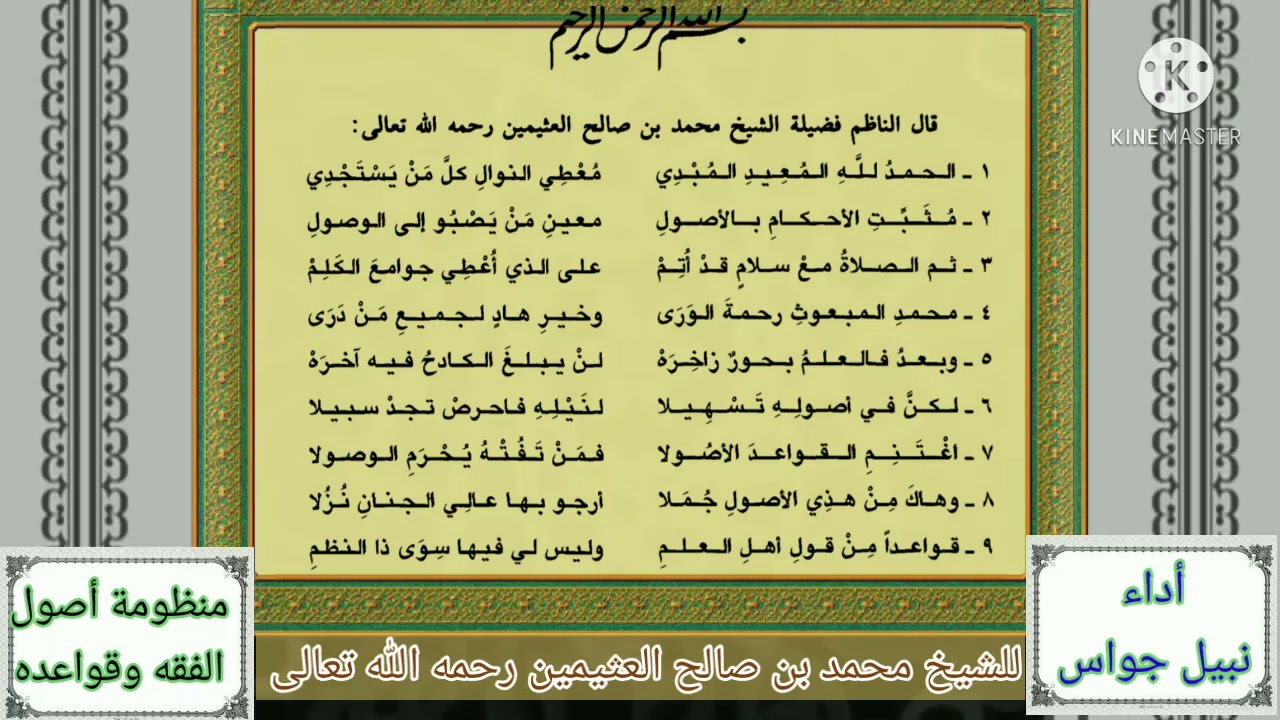 بسم الله الرحمن الرحيم
KINEMASTER
قال الناظم فضيلة الشيخ محمد بن صالح العثيمين رحمه الله تعالى:
١ ـ الحمدُ للَّهِ المُعِيدِ المُبْدِي مُعْطِي النوالِ كلَّ مَنْ يَسْتَجْدِي
٢ ـ مُثَبِّتِ الأحكامِ بالأصولِ معينِ مَنْ يَصْبُو إلى الوصولِ
٣ ـ ثم الصلاةُ معْ سلامٍ قدْ أُتِمْ على الذي أُعْطِي جوامعَ الكَلِمْ
٤ ـ محمدِ المبعوثِ رحمةَ الوَرَى وخيرِ هادٍ لجميعِ مَنْ دَرَى
٥ ـ وبعدُ فالعلمُ بحورٌ زاخِرَهْ لنْ يبلغَ الكادحُ فيه آخرَهْ
٦ ـ لكنَّ في أصولِهِ تَسْهِيلا لنَيْلِهِ فاحرصْ تجدْ سبيلا
٧ ـ اغْتَنِمِ القواعدَ الأصُولا فمَنْ تَفُتْهُ يُحْرَمِ الوصولا
٨ ـ وهاكَ مِنْ هذِي الأصولِ جُمَلا أرجو بها عالِي الجنانِ نُزُلا
٩ ـ قواعداً مِنْ قولِ أهلِ العلمِ وليس لي فيها سِوَى ذا النظمِ
أداء
نبيل جواس
للشيخ محمد بن صالح العثيمين رحمه الله تعالى
منظومة أصول
الفقه وقواعده